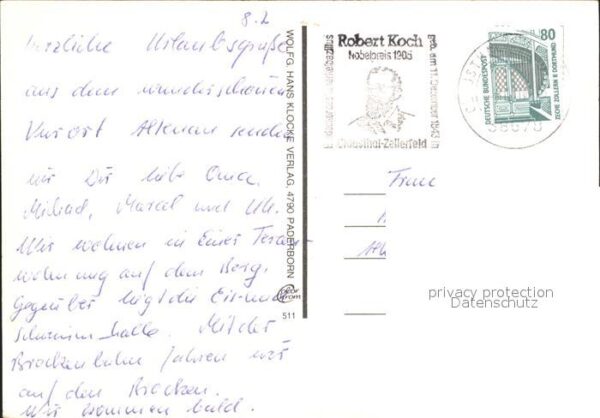 8.2
Herzliche Urlaubsgrüße
aus dem wunderschönen
Kurort Altenau senden
wir Dir liebe Oma.
Michael, Marcel und Uli.
Wir wohnen in einer Ferien-
wohnung auf dem Berg.
Gegenüber liegt die Eis- und
Schwimmhalle. Mit der
Brockenbahn fahren wir
auf den Brocken.
Wir kommen bald.
WOLFG. HANS KLOCKE VERLAG, 4790 PADERBORN
511
Robert Koch
Nobelpreis 1905
geb. am 11. Dezember 1843 in
Clausthal-Zellerfeld
80
DEUTSCHE BUNDESPOST
ZECHE ZOLLERN II DORTMUND
38678
Frau
privacy protection
Datenschutz